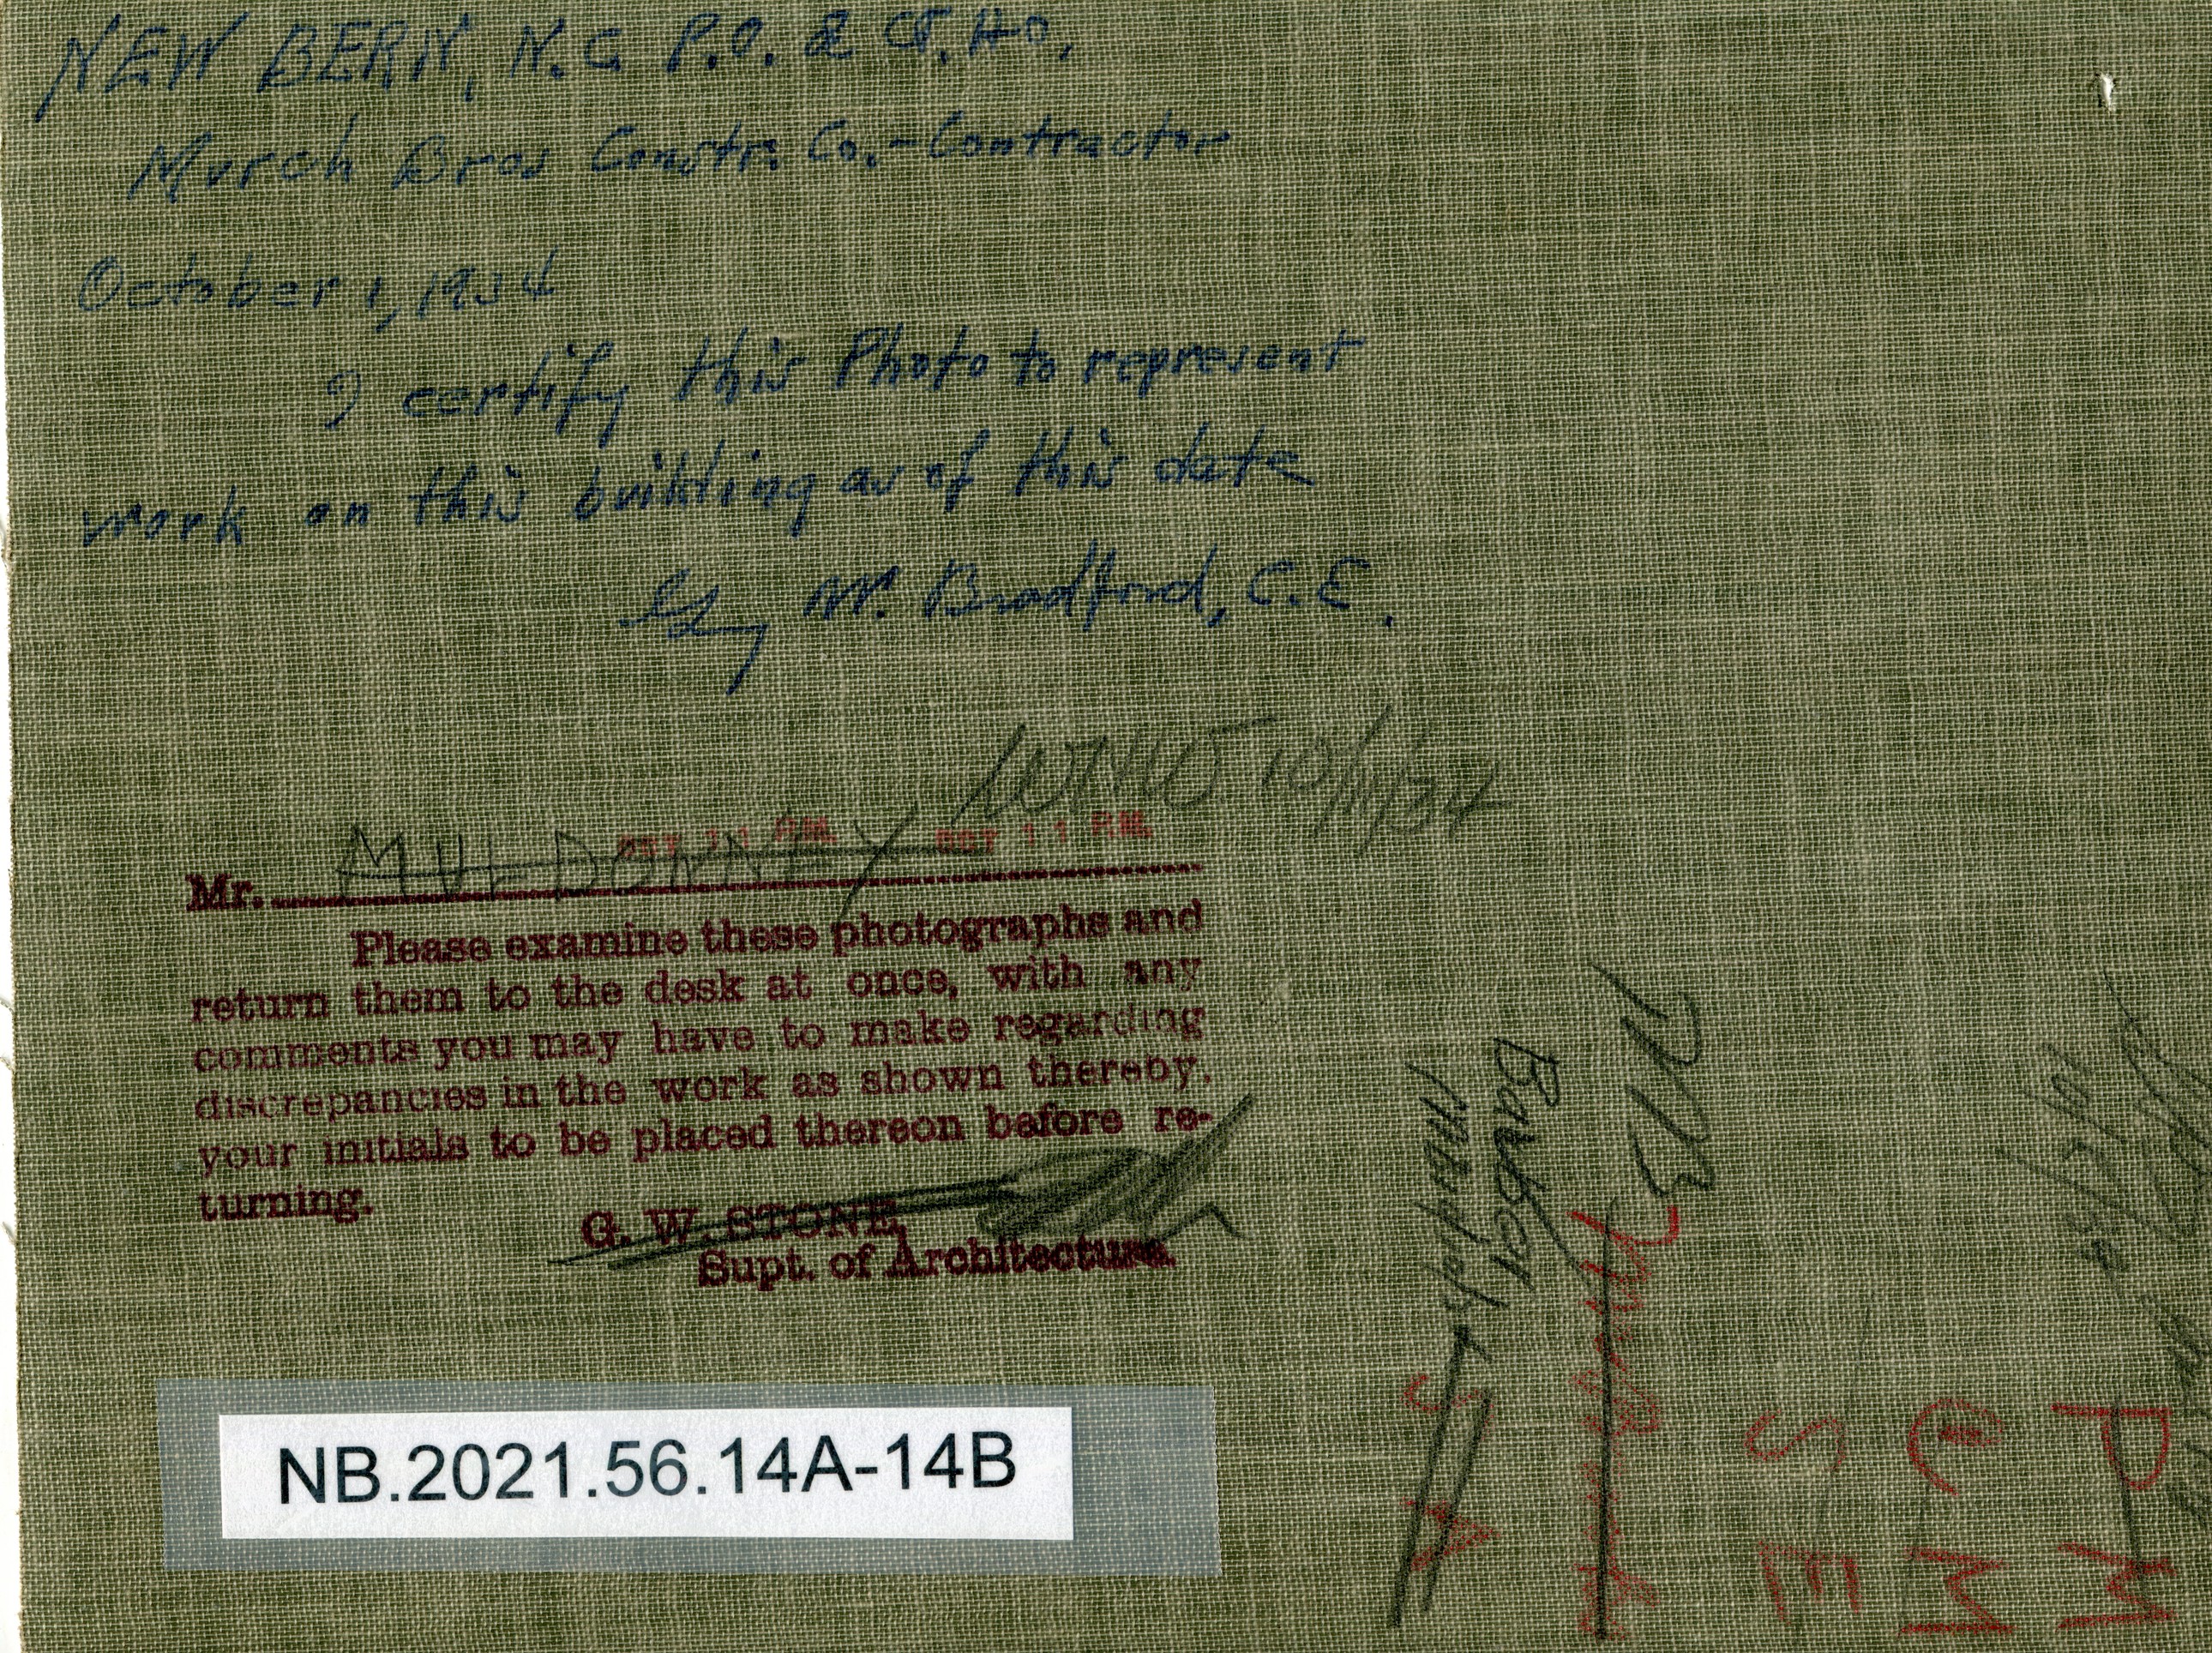 NEW BERN, N.C. P.O. & CT. HO.
Murch Bros Constr. Co. - Contractor
October 1, 1934
I certify this Photo to represent
work on this building as of this date
W. Bradford, C.E.
10/11/34
OCT 11 P.M. OCT 11 P.M.
Mr. MULDOWNEY
Please examine these photographs and
return them to the desk at once, with any
comments you may have to make regarding
discrepancies in the work as shown thereby,
your initials to be placed thereon before re-
turning.
G. W. STONE,
Supt. of Architecture.
NB.2021.56.14A-14B
Barber
S A
S E
C M
P M